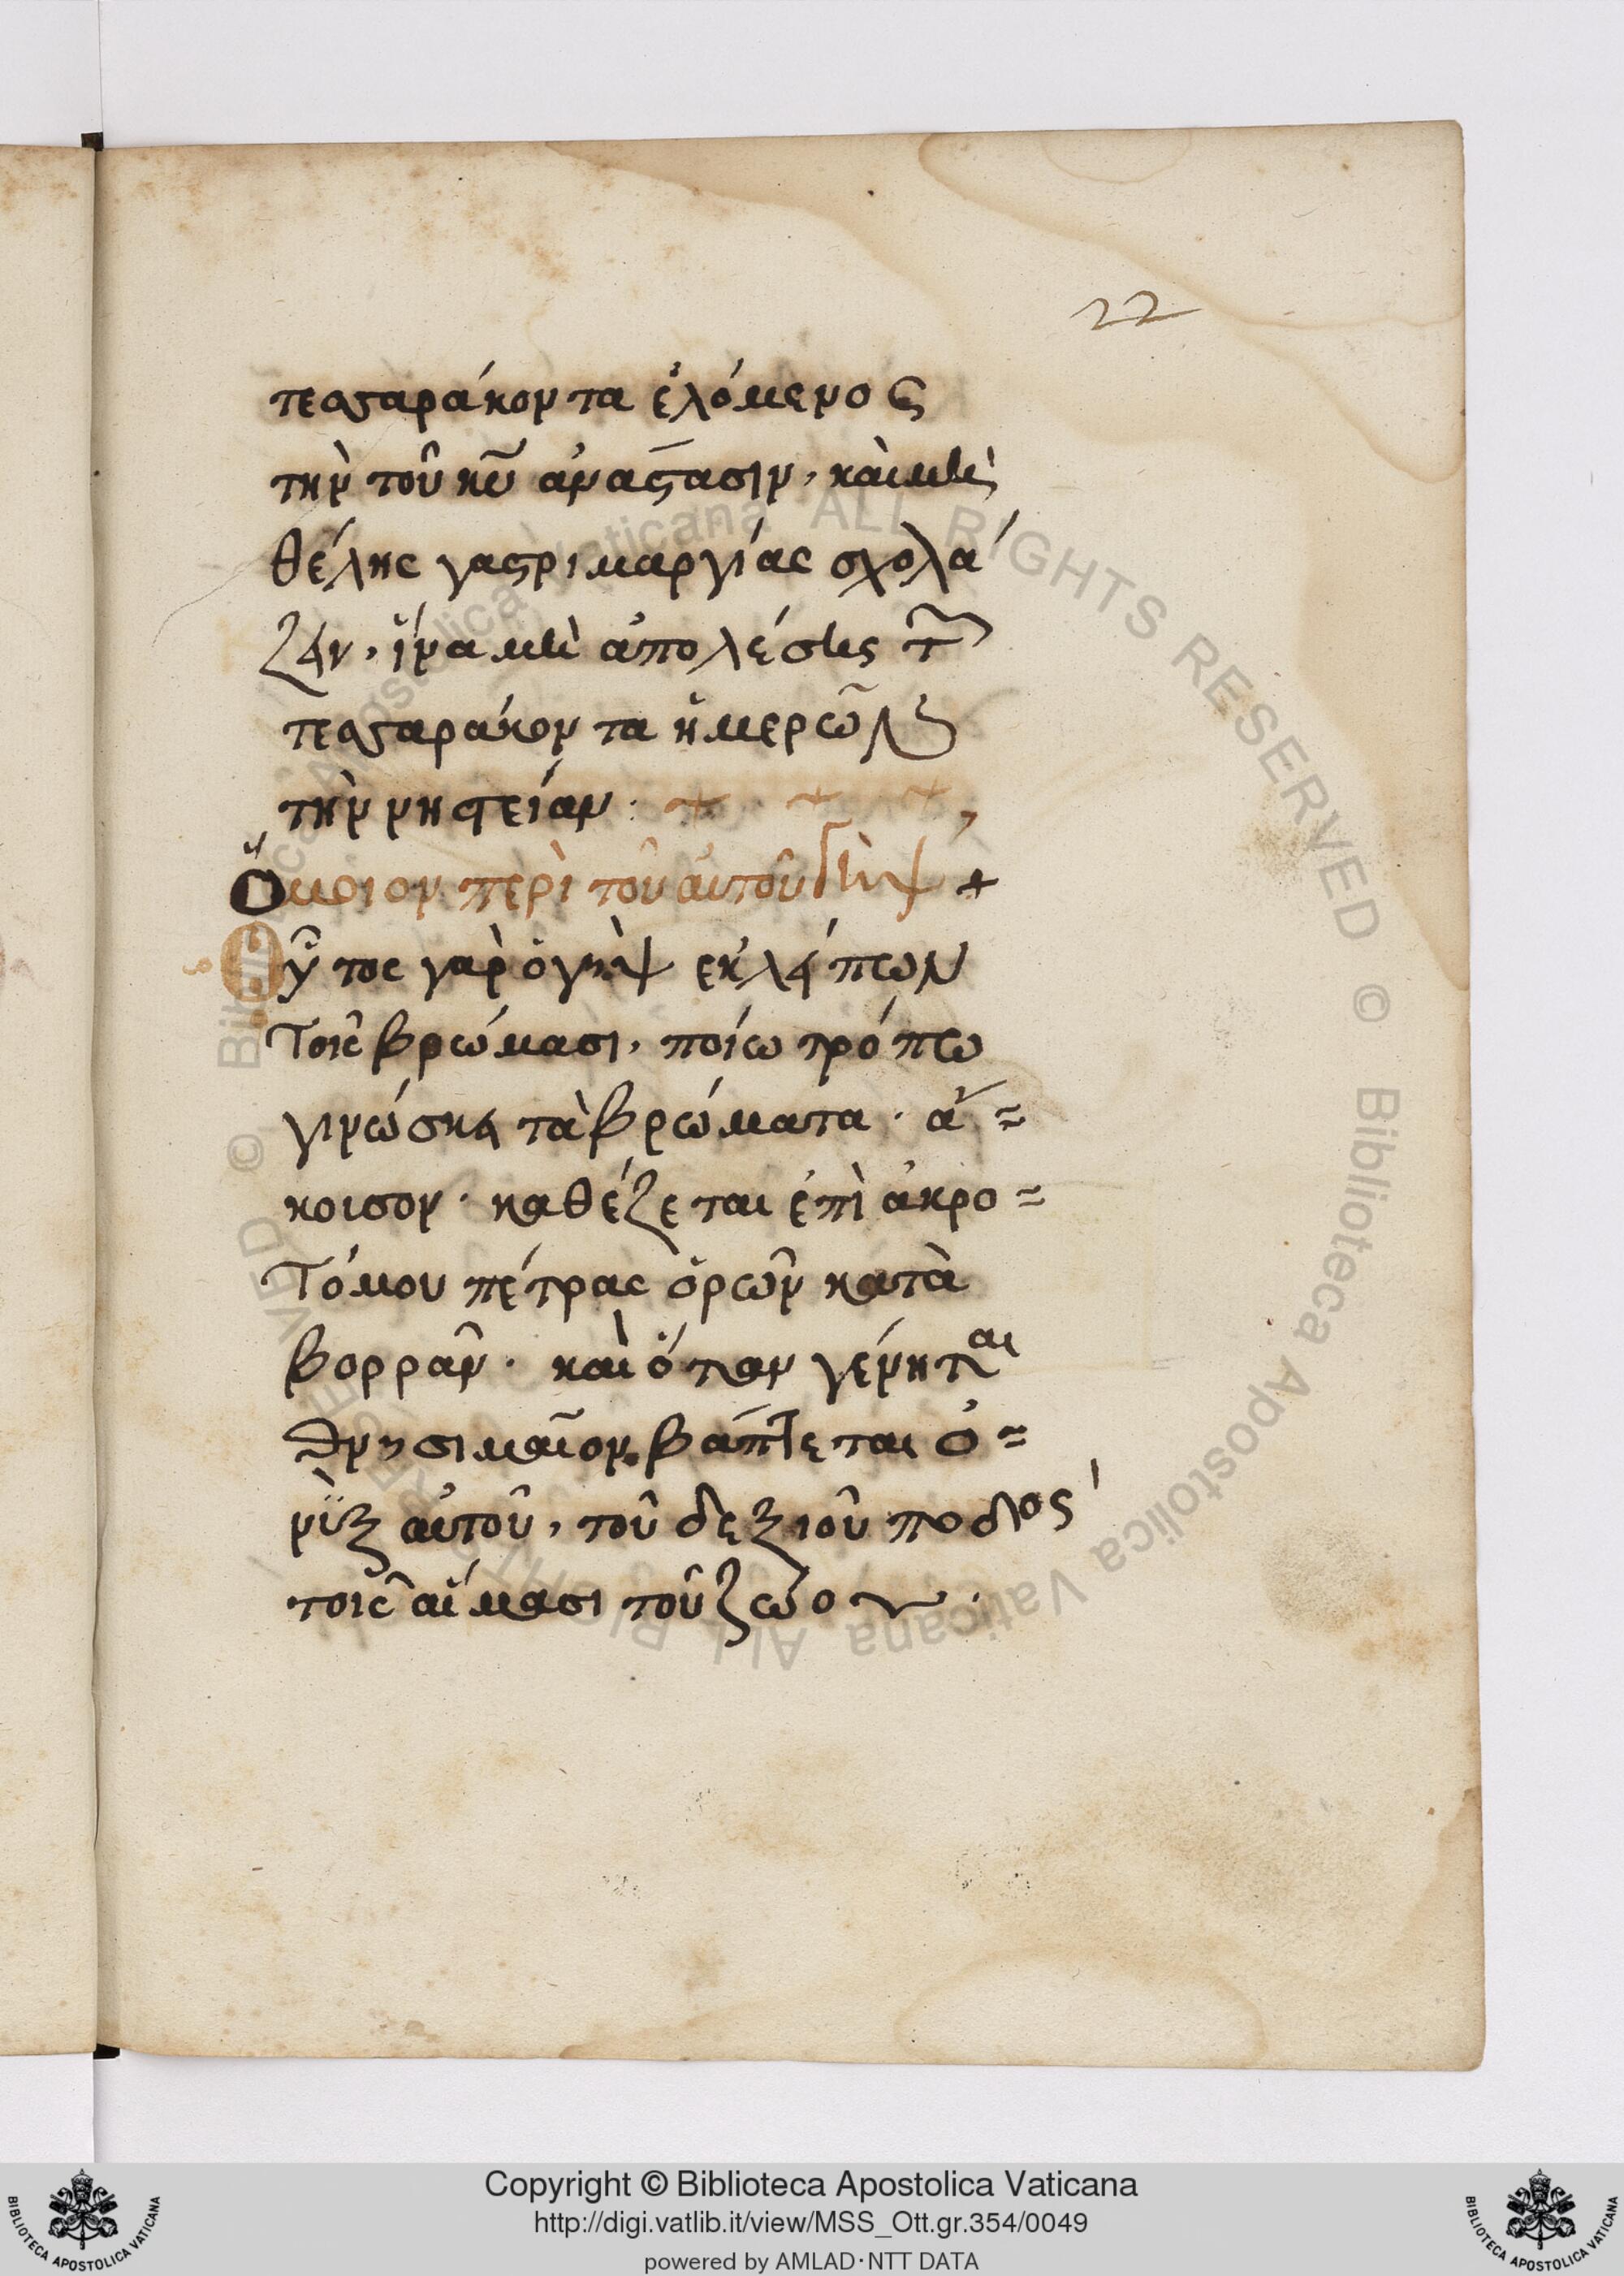 22
τεσσαράκοντα ἐλόμενος
τὴν τοῦ κυ ἀνάστασιν, καὶ μὴ
θέλης γαστριμαργίας σχολά
ζειν, ἵνα μὴ ἀπολέσης τ
τεσσαράκοντα ἡμερῶν
τὴν νηστείαν :
Ὅμοιον περὶ τοῦ αὐτοῦ γὺψ +
Οὗτος γὰρ ὁ γὺψ ἐκλείπων
τοῖς βρώμασι, ποίω τρόπω
γινώσκει τὰ βρώματα · ἄ =
κοισον · καθέζεται ἐπὶ ἀκρο =
τόμου πέτρας ὁρῶν κατὰ
βορρᾶν · καὶ ὅταν γένηται
θνησιμαῖον βάπτεται ὁ =
νὺξ αὐτοῦ, τοῦ δεξιοῦ ποδός
τοῖς αἵμασι τοῦ ζώου ·
Copyright © Biblioteca Apostolica Vaticana
http://digi.vatlib.it/view/MSS_Ott.gr.354/0049
powered by AMLAD·NTT DATA
BIBLIOTECA APOSTOLICA VATICANA
BIBLIOTECA APOSTOLICA VATICANA